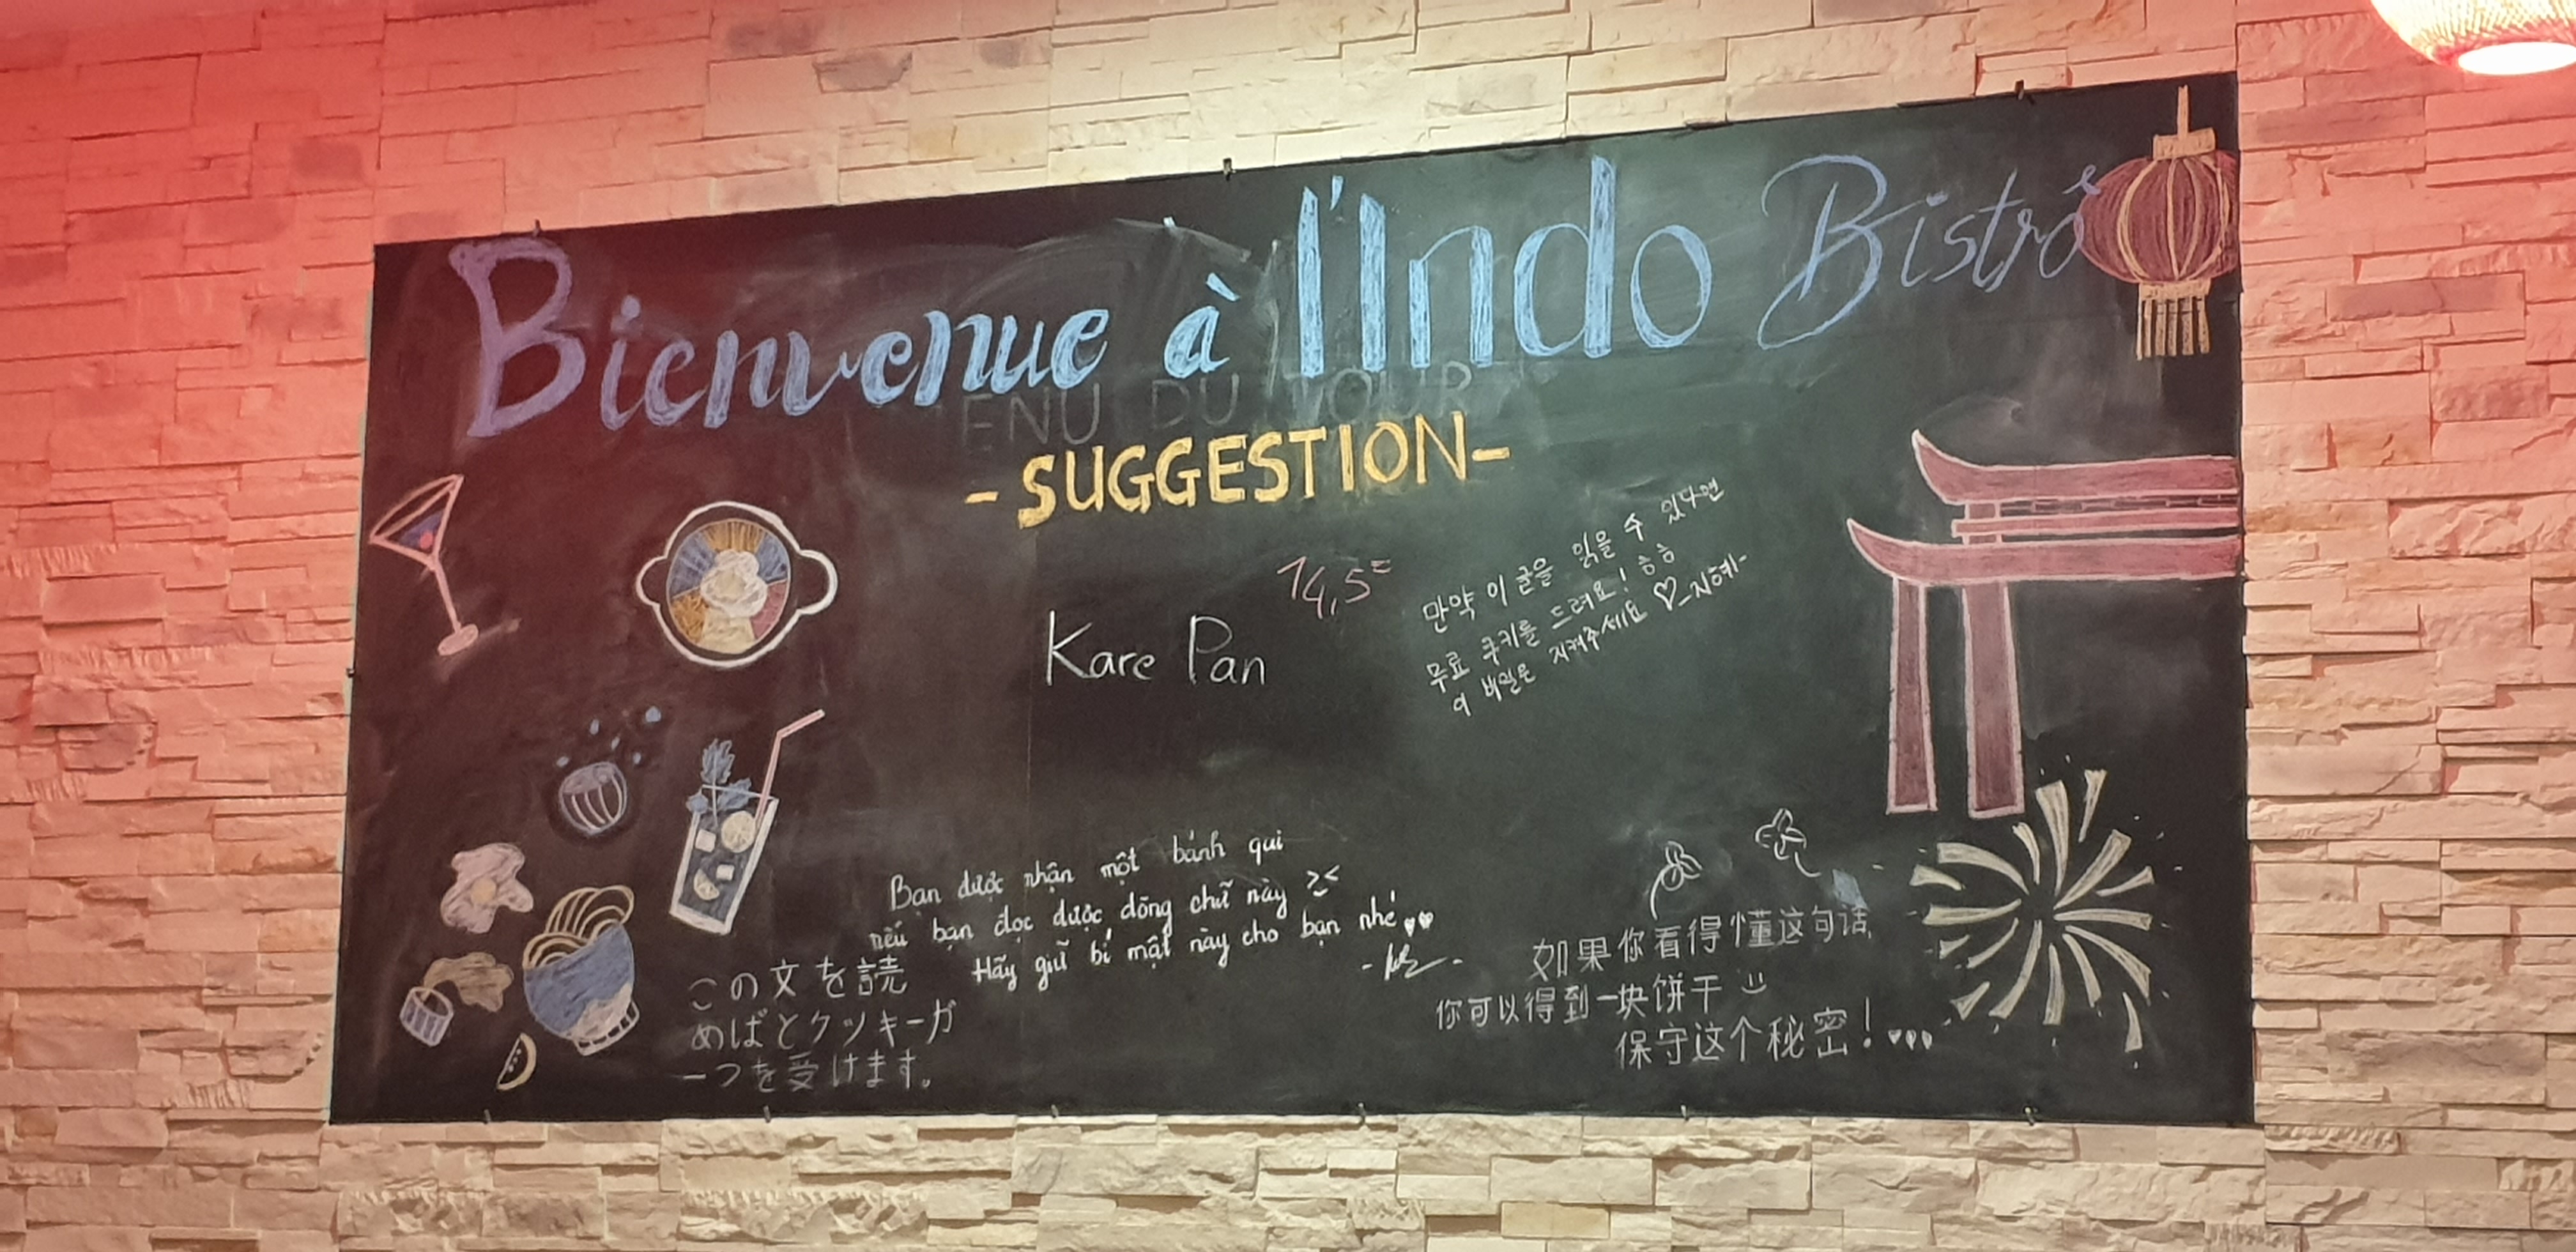 Bienvenue à l'Indo Bistro
ENU DU JOUR
-SUGGESTION-
14,5
Kare Pan
만약 이 글을 읽을 수 있다면
무료 쿠키를 드려요! ㅎㅎ
이 비밀은 지켜주세요 ♡ -지혜-
Bạn được nhận một bánh qui
nếu bạn đọc được dòng chữ này ><
Hãy giữ bí mật này cho bạn nhé
この文を読
めばとクッキーが
一つを受けます。
如果你看得懂这句话
你可以得到一块饼干
保守这个秘密!